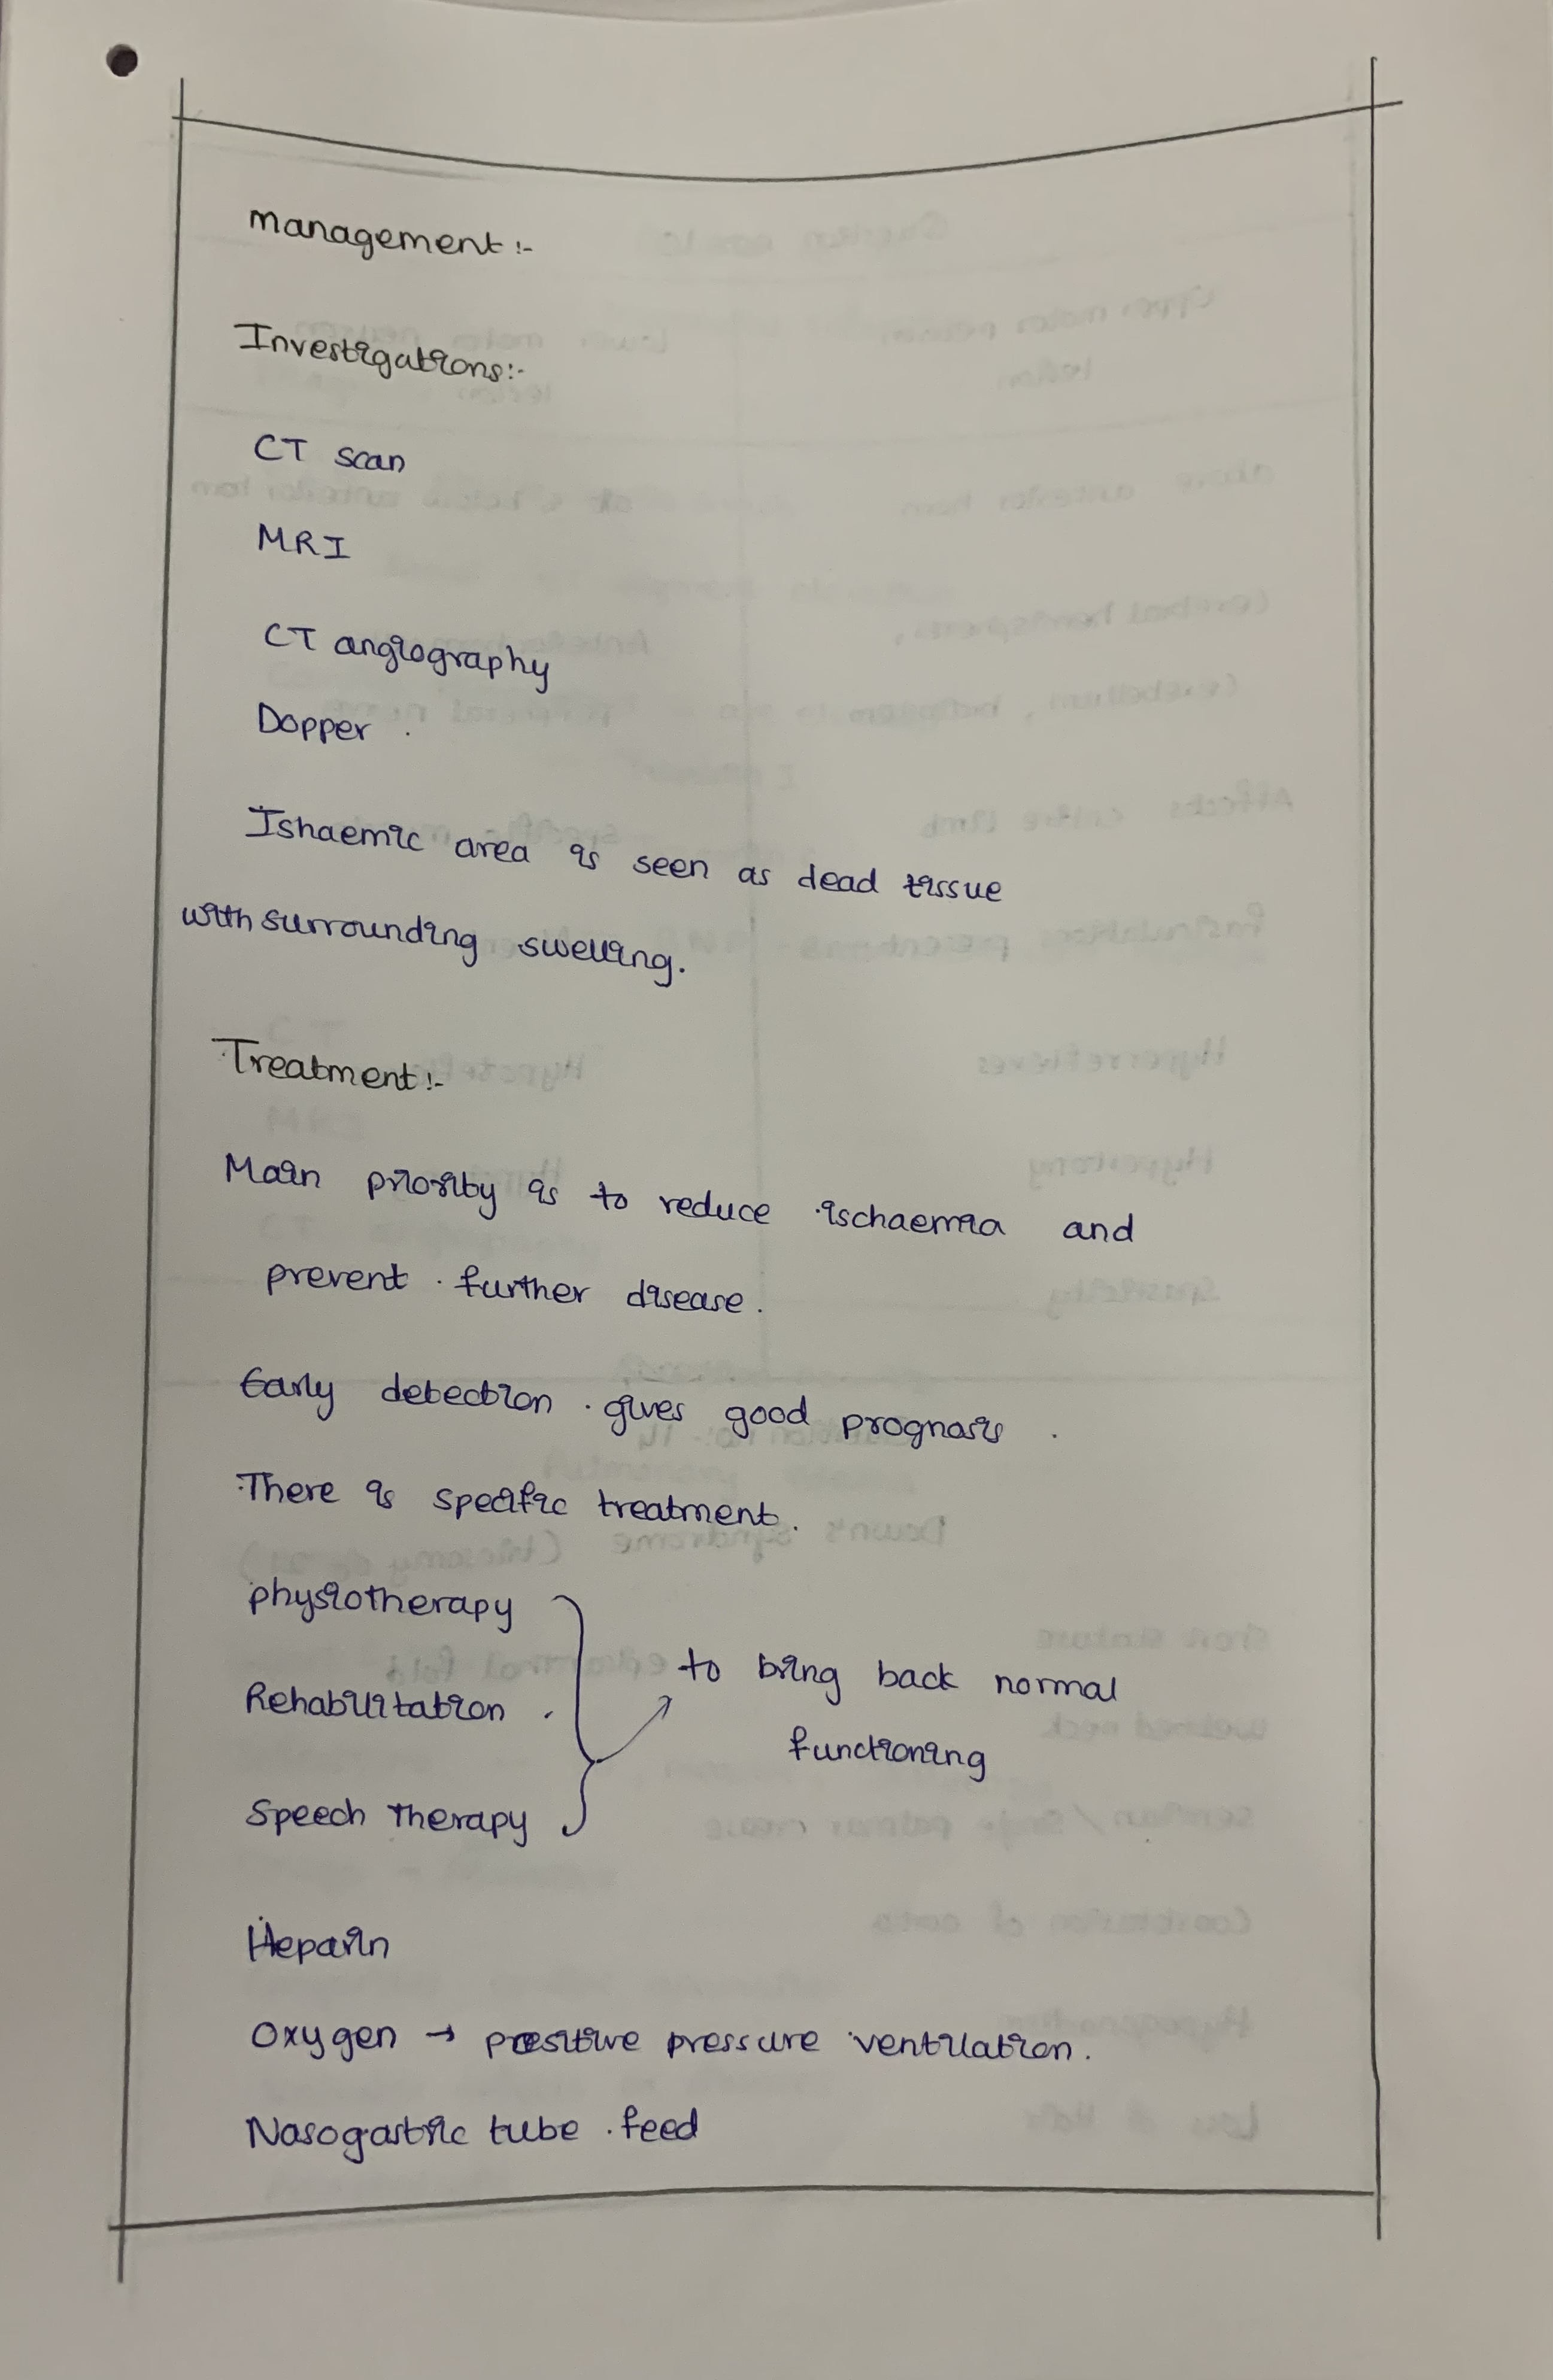 Management :-
Investigations:-
CT scan
MRI
CT angiography
Dopper .
Ishaemic area is seen as dead tissue
with surrounding swelling.
Treatment :-
Main priority is to reduce ischaemia and
prevent further disease.
Early detection gives good prognosis .
There is specific treatment.
physiotherapy
Rehabilitation .
Speech therapy
to bring back normal
functioning
Heparin
Oxygen → positive pressure ventilation.
Nasogastric tube feed